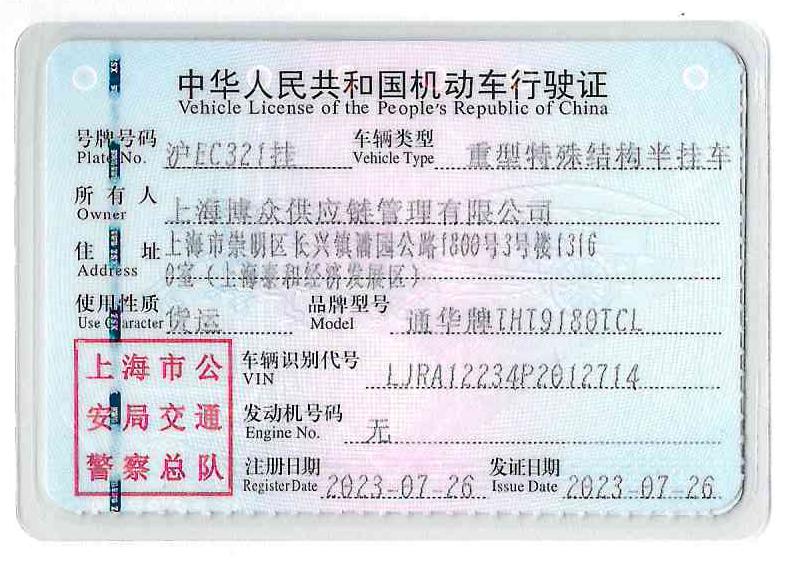 中华人民共和国机动车行驶证
Vehicle License of the People's Republic of China
号牌号码 沪EC321挂 车辆类型 重型特殊结构半挂车
Plate No. Vehicle Type
所有人 上海博众供应链管理有限公司
Owner
住址 上海市崇明区长兴镇潘园公路1800号3号楼1316
Address 0室(上海泰和经济发展区)
使用性质 货运 品牌型号 通华牌THT9180TCL
Use Character Model
上海市公
安局交通
警察总队
车辆识别代号 LJRA12234P2012714
VIN
发动机号码 无
Engine No.
注册日期 2023-07-26 发证日期 2023-07-26
Register Date Issue Date